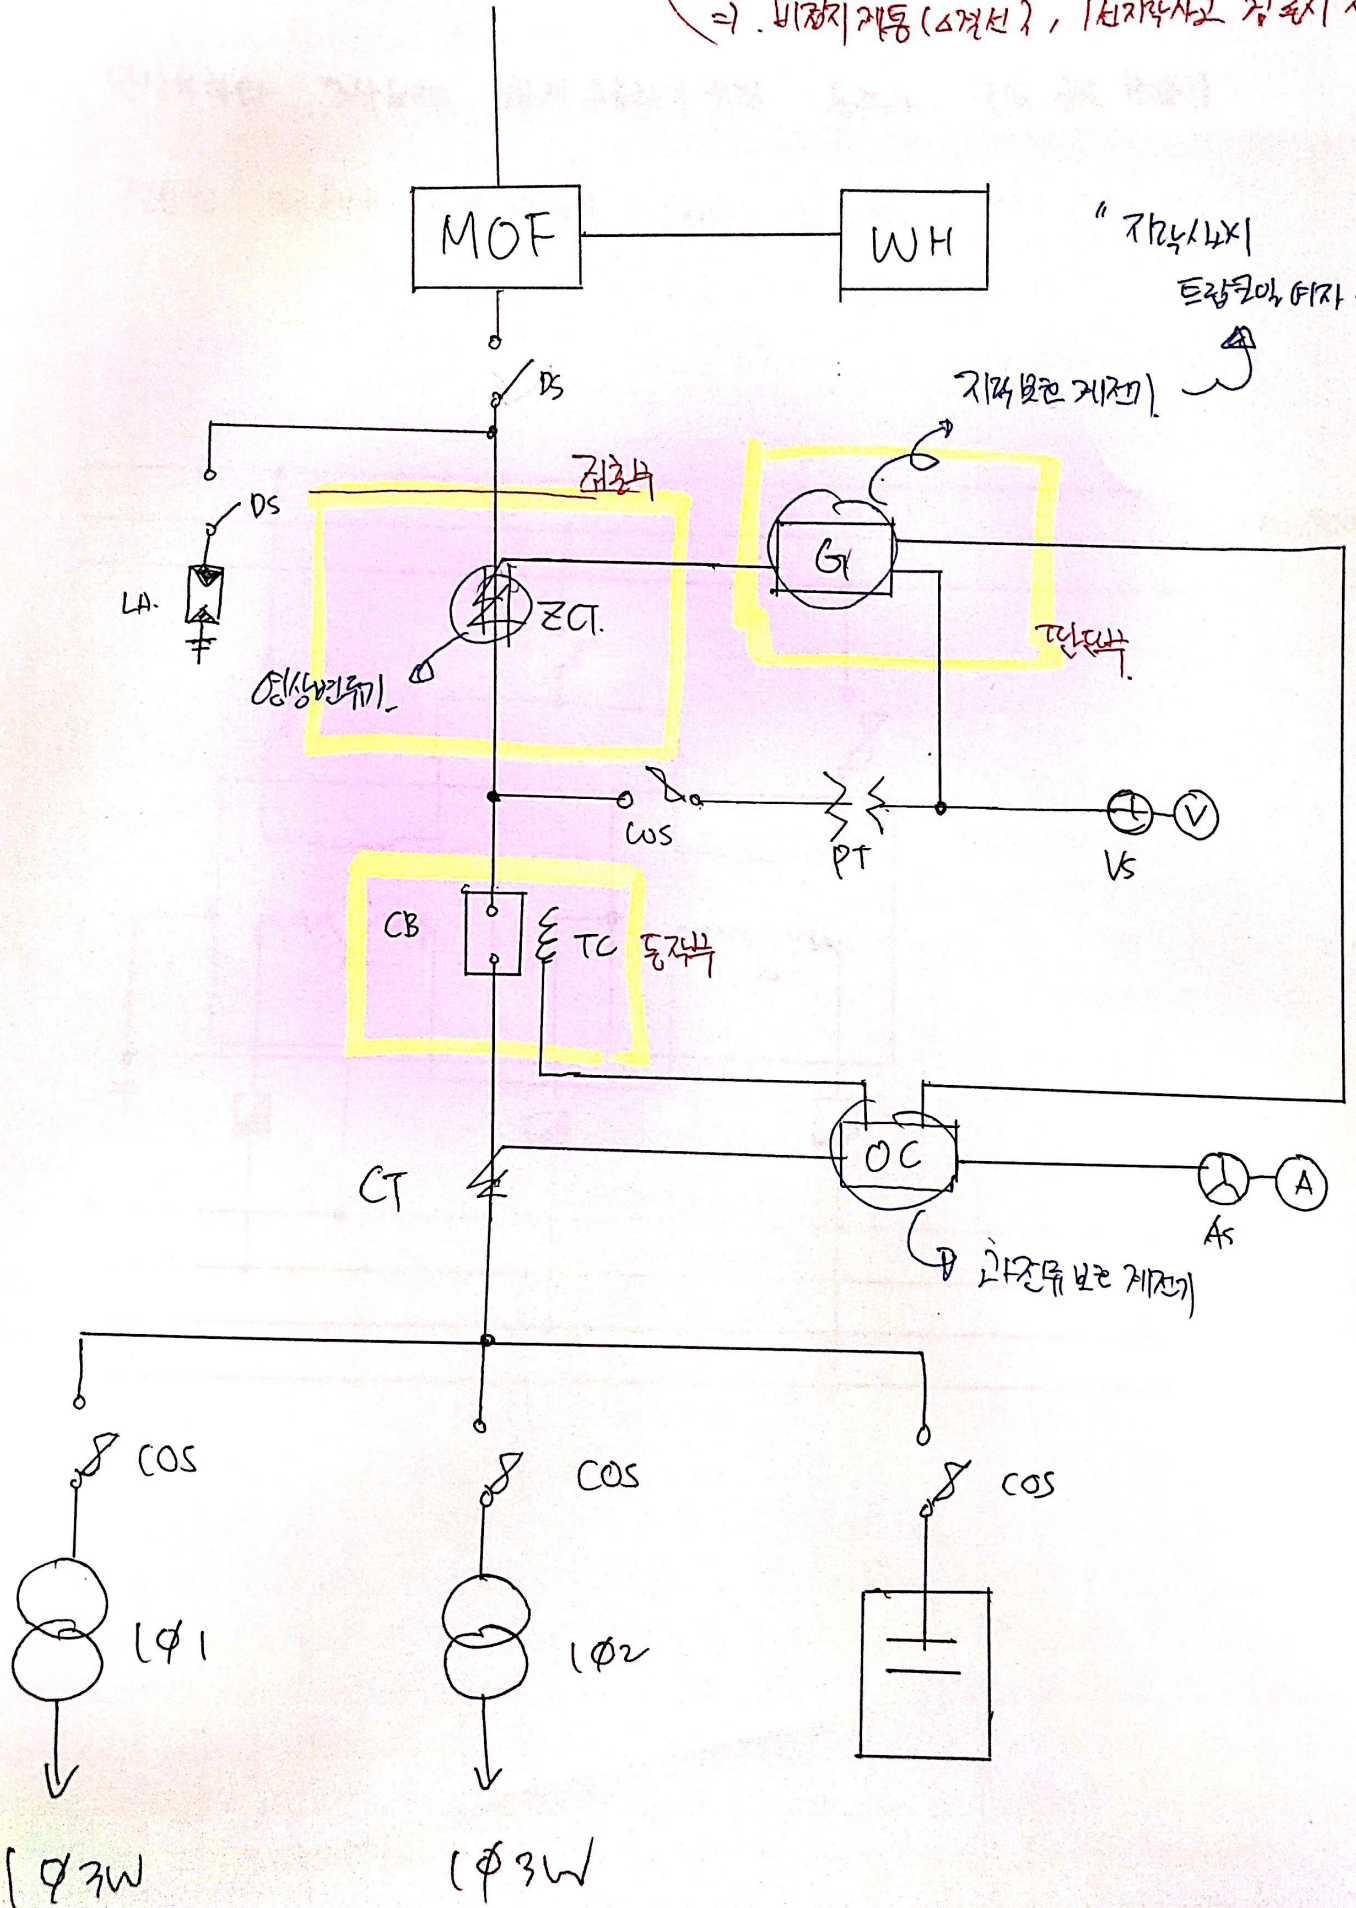 ⇒. 비접지 계통(△결선), 1선지락사고 검출시
MOF
WH
" 지락사고시
트립코일 여자
DS
지락보호 계전기.
검출부
DS
G
LA.
ZCT.
판단부.
영상변류기.
COS
PT
V
VS
CB
TC
동작부
OC
CT
A
AS
과전류 보호 계전기
COS
COS
COS
1Φ1
1Φ2
1Φ3W
1Φ3W